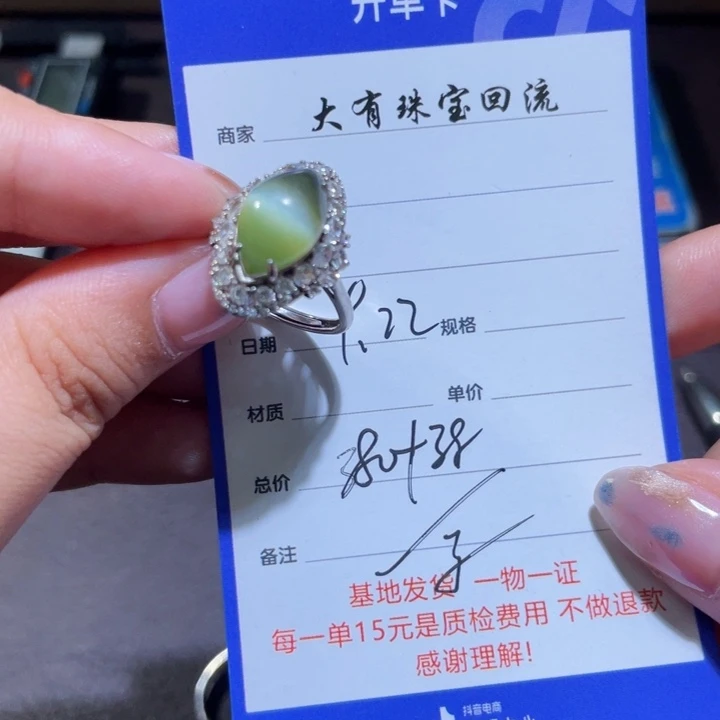 开单卡
商家 大有珠宝回流
日期 9.22 规格
材质 单价
总价 380+38
备注
基地发货 一物一证
每一单15元是质检费用 不做退款
感谢理解!
抖音电商